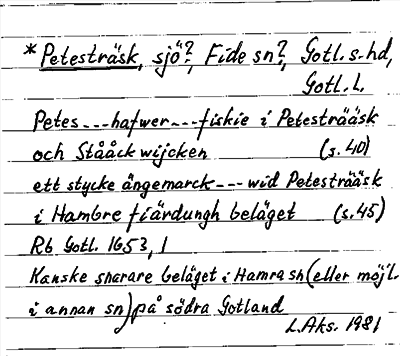 * Petesträsk, sjö?, Fide sn?, Gotl. s. hd,
Gotl. l.
Petes---hafwer---fiskie i Petesträäsk
och Stååckwijcken (s. 40)
ett stycke ängemarck---wid Petesträäsk
i Hambre fiärdungh beläget (s. 45)
Rb Gotl. 1653, 1
Kanske snarare beläget i Hamra sn (eller möjl.
i annan sn) på södra Gotland
L. Aks. 1981